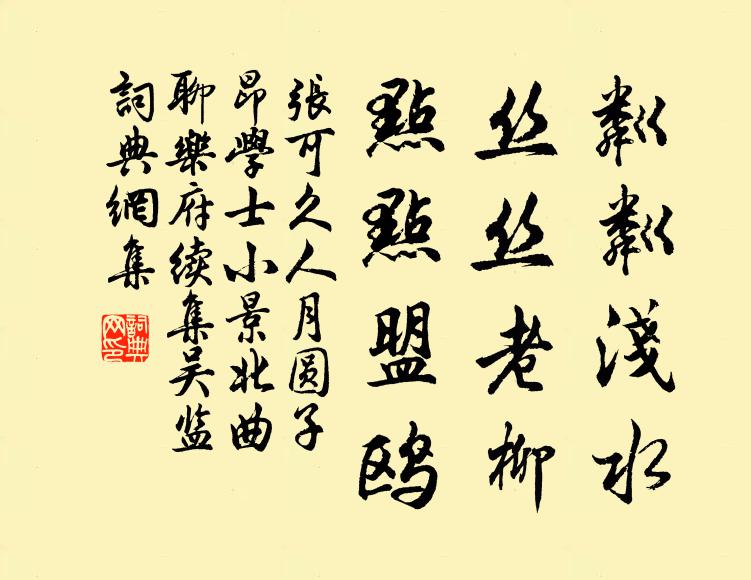 粼粼淺水
丝丝老柳
點點盟鸥
張可久人月圆子
昂學士小景北曲
聊樂府续集吴监
詞典網集
詞典网印